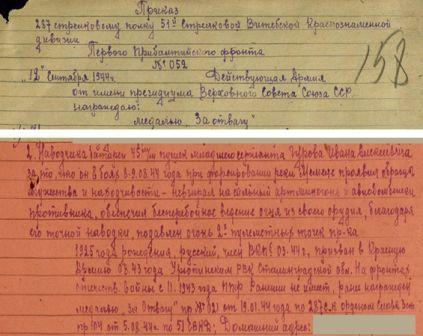 Приказ
287 стрелковому полку 51й Стрелковой Витебской Краснознаменной
дивизии
Первого Прибалтийского фронта
№ 052
158
"12" Сентября 1944г. Действующая Армия
от имени президиума Верховного Совета Союза ССР
награждаю:
медалью "За отвагу"
2. Наводчика батареи 45 мм пушек младшего сержанта Гурова Ивана Алексеевича
за то, что он в боях 8-9.08.44 года при форсировании реки Мемеле проявил образцы
мужества и находчивости - невзирая на сильный артминогонь и авиабомбежку
противника, обеспечил бесперебойное ведение огня из своего орудия, благодаря
его точной наводки, подавлен огонь 2х пулеметных точек пр-ка
1925 года рождения, русский, член ВКПб 03.44г., призван в Красную
Армию 03.43 года РВК Сталинградской обл. На фронтах
отечеств. войны с 11.1943 года НПФ Ранений не имеет, ранее награжден
медалью "За Отвагу" пр № 02 от 19.01.44 года по 287 с.п. орденом Слава 3 ст
пр 104 от 5.08.44г. по 51 Домашний адрес: